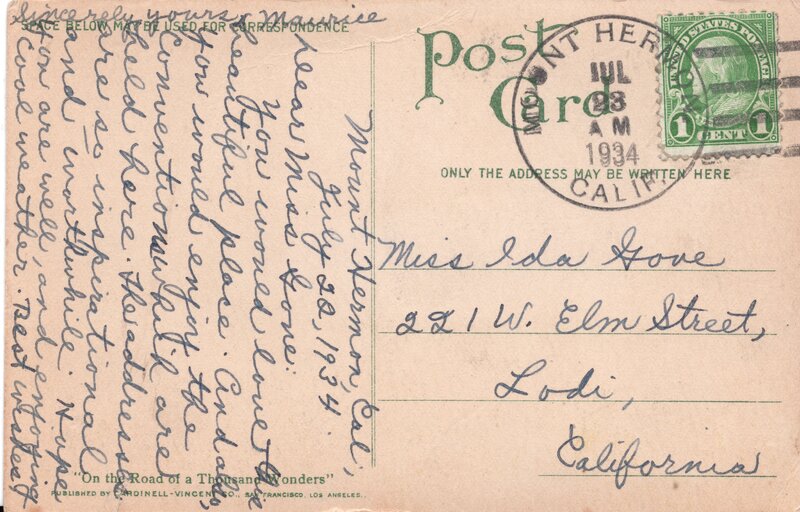 SPACE BELOW MAY BE USED FOR CORRESPONDENCE
Post
Card
ONLY THE ADDRESS MAY BE WRITTEN HERE
UNITED STATES POSTAGE
1 CENT 1
MOUNT HERMON
JUL
23
AM
1934
CALIF.
Mount Hermon, Cal.,
July 22, 1934.
Dear Miss Gove:
You would love this
beautiful place. And also,
you would enjoy the
Conventions which are
held here. The addresses
are so inspirational
and worthwhile. Hope
you are well, and enjoying
cool weather. Best wishes,
Sincerely yours, Maurice
Miss Ida Gove
221 W. Elm Street,
Lodi,
California
"On the Road of a Thousand Wonders"
PUBLISHED BY CARDINELL-VINCENT CO., SAN FRANCISCO, LOS ANGELES.